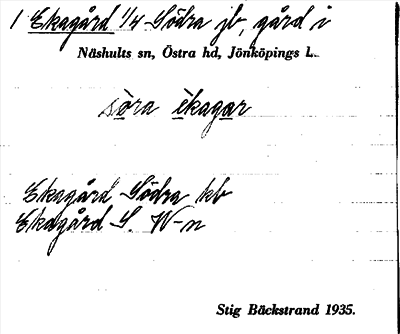 1 Ekagård 1/4 Södra jb, gård i
Näshults sn, Östra hd, Jönköpings l.
söra èkagar
Ekagård Södra kb
Ekagård S. W-n
Stig Bäckstrand 1935.